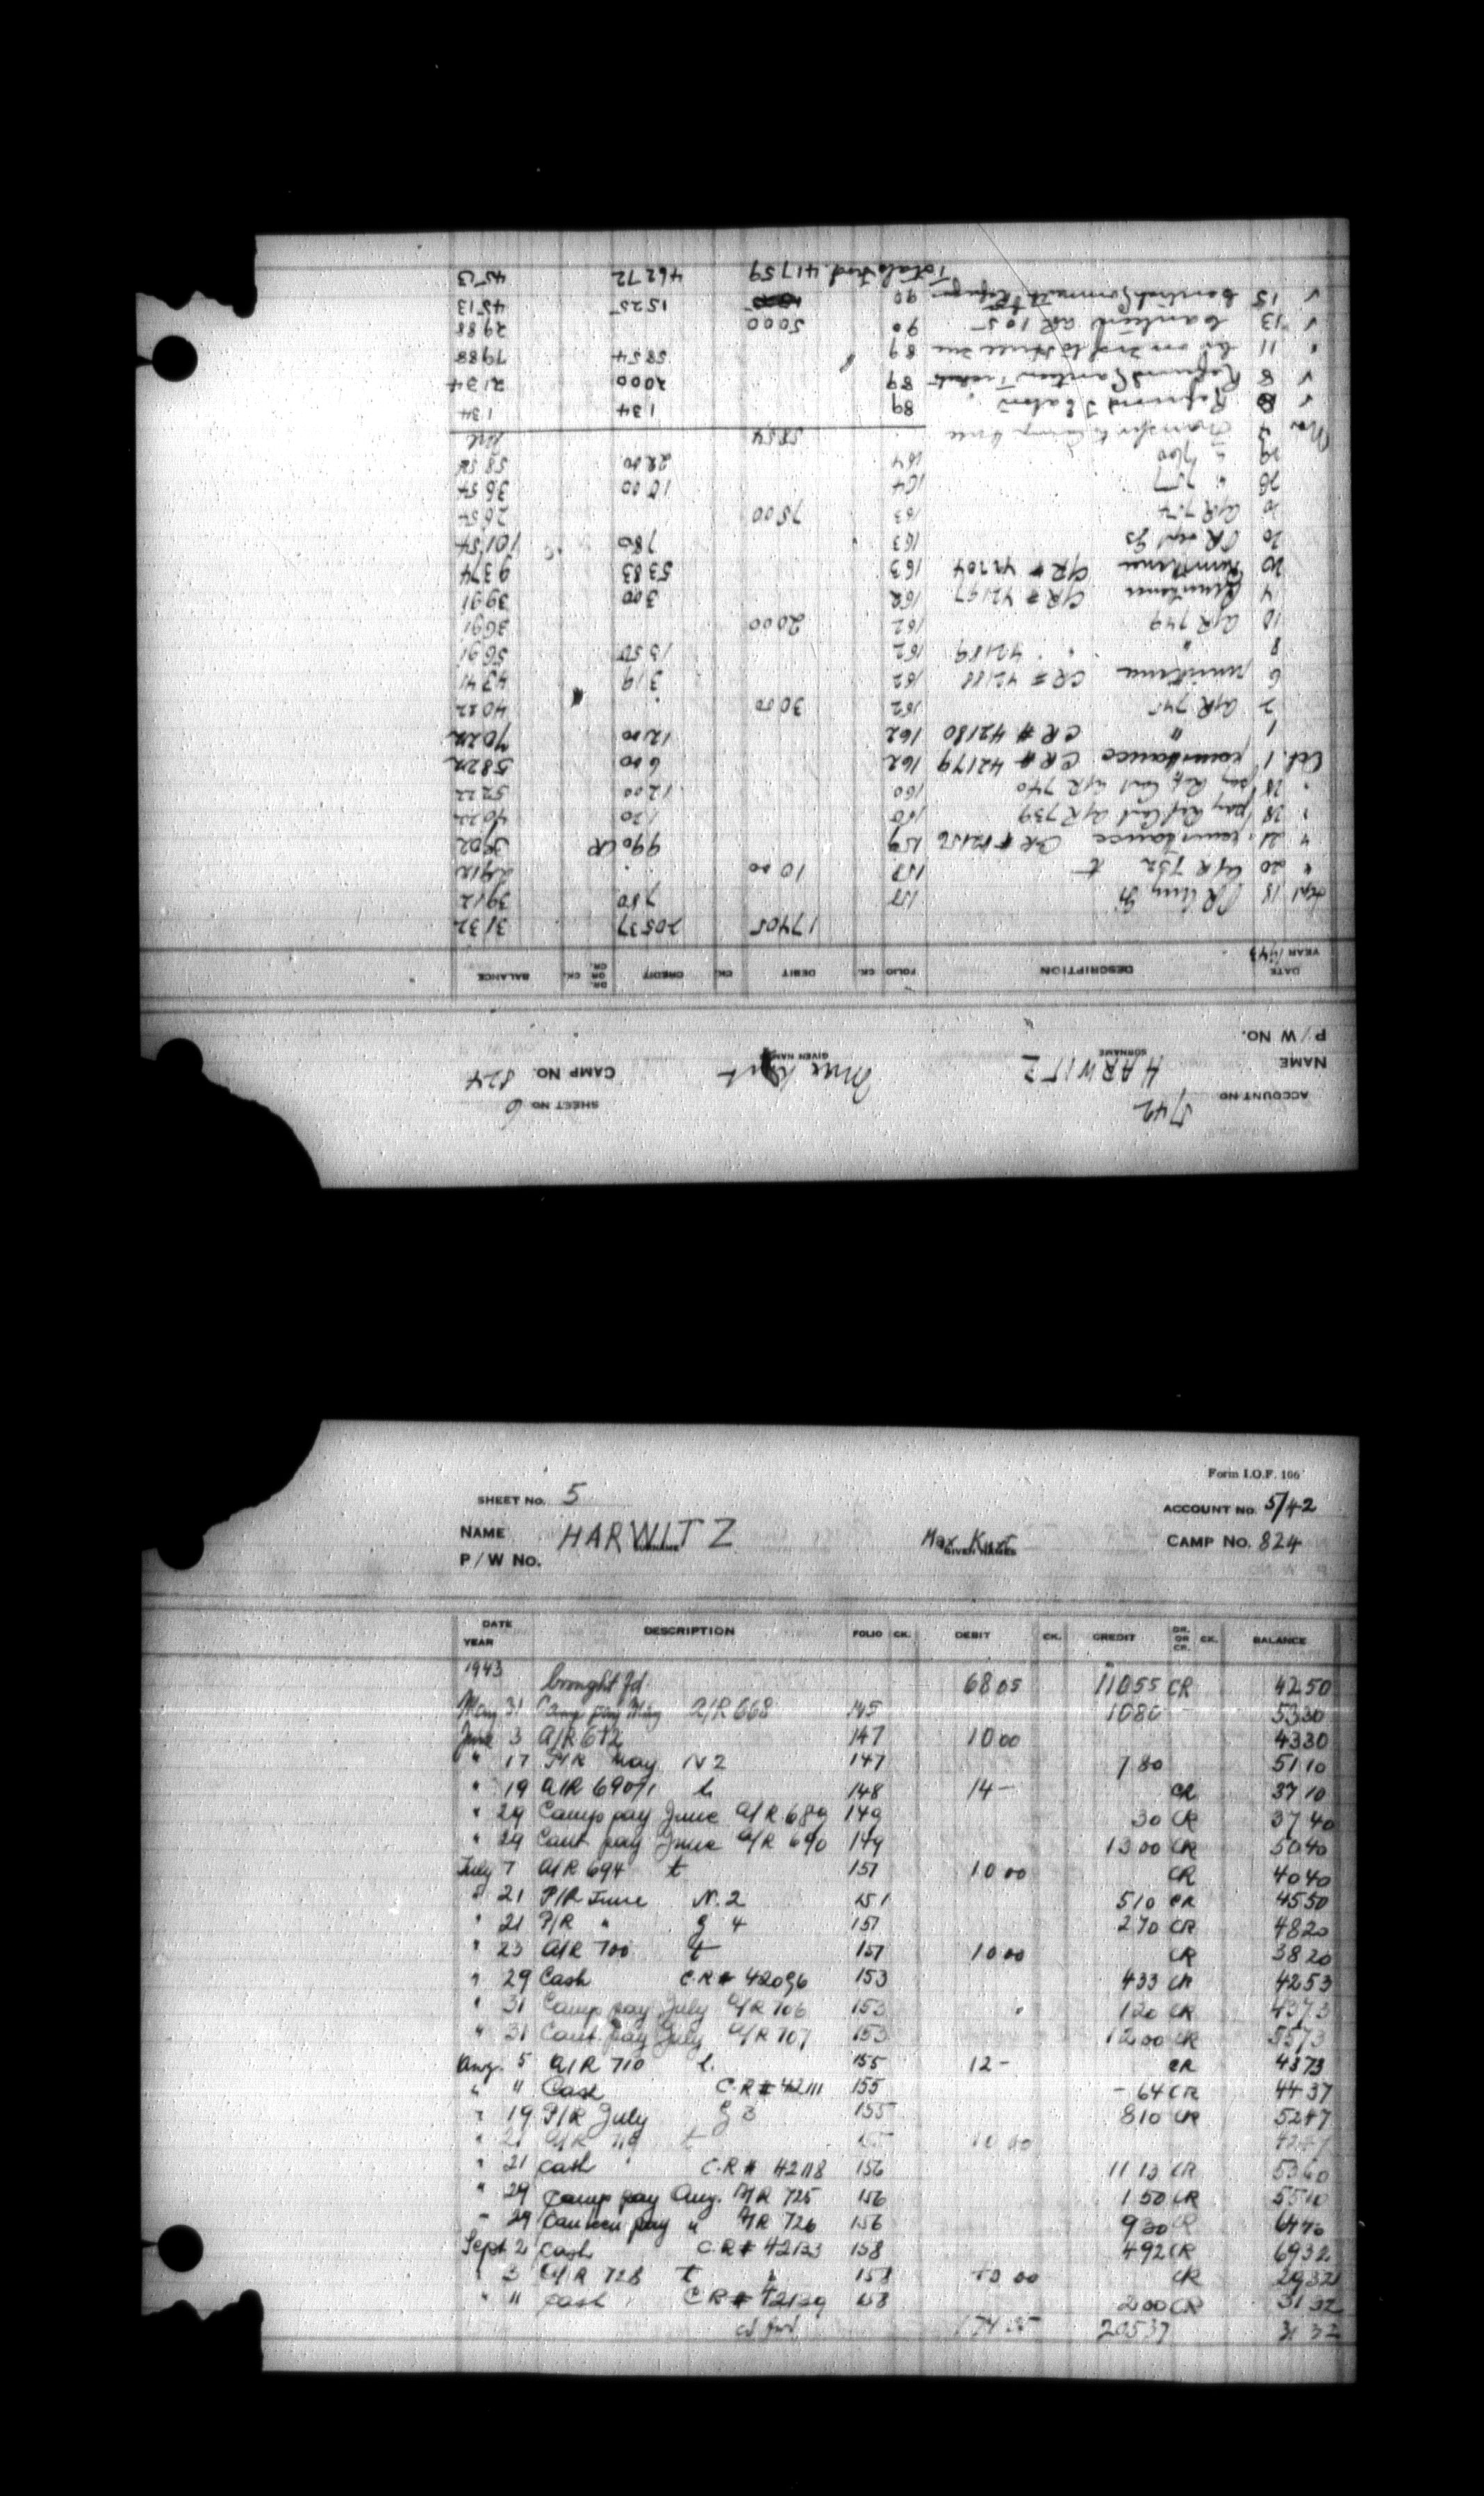 Form I.O.F. 166
SHEET NO. 5 ACCOUNT NO. 5/42
NAME HARWITZ Max Kurt CAMP NO. 824
SURNAME GIVEN NAMES
P/W NO.
DATE YEAR DESCRIPTION FOLIO CK. DEBIT CK. CREDIT DR. OR CR. CK. BALANCE
1943 brought fd. 6805 11055 CR 4250
May 31 Camp pay May A/R 668 145 1080 5330
June 3 A/R 672 147 1000 4330
" 17 P/R May N 2 147 780 5110
" 19 A/R 690/1 148 14- CR 3710
" 29 Camp pay June A/R 689 149 30 CR 3740
" 29 Cant pay June A/R 690 149 1300 CR 5040
July 7 A/R 694 t 151 1000 CR 4040
" 21 P/R June N. 2 151 510 CR 4550
" 21 P/R " G 4 151 270 CR 4820
" 23 A/R 700 t 151 1000 CR 3820
" 29 Cash C.R # 42096 153 433 CR 4253
" 31 Camp pay July A/R 706 153 120 CR 4373
" 31 Cant. pay July A/R 707 153 1200 CR 5573
Aug. 5 A/R 710 t. 155 12- CR 4373
" " Cash C.R # 42111 155 -64 CR 4437
" 19 P/R July G 3 155 810 CR 5247
" 21 A/R 719 t 155 1000 4247
" 21 cash C.R # 42118 156 1113 CR 5360
" 29 camp pay Aug. A/R 725 156 150 CR 5510
" 29 Canteen pay " A/R 726 156 930 CR 6440
Sept 2 cash C.R # 42133 158 492 CR 6932
" 3 A/R 728 t 158 4000 CR 2932
" " cash CR # 42139 158 200 CR 3132
cd fwd 17405 20537 3132
ACCOUNT NO. 5/42 SHEET NO. 6
NAME HARWITZ Max Kurt CAMP NO. 824
SURNAME GIVEN NAMES
P/W NO.
DATE YEAR 1943 DESCRIPTION FOLIO CK. DEBIT CK. CREDIT DR. OR CR. CK. BALANCE
17405 20537 3132
Sept 18 PR Aug 157 780 3912
" 20 A/R 732 t 157 1000 2912
" 21 remittance CR # 42156 159 990 CR 3902
" 28 pay Cant A/R 739 160 120 4022
" 28 pay Cant A/R 740 160 1200 5222
Oct. 1 remittance CR # 42179 162 600 5822
1 " CR # 42180 162 1200 7022
2 A/R 745 162 3000 4022
6 remittance CR # 42188 162 319 4341
8 " " 42189 162 1350 5691
10 A/R 749 162 2000 3691
4 Remittance CR # 42197 162 300 3991
20 Remittance CR # 42204 163 5383 9374
20 PR Sept 163 780 10154
20 A/R 754 163 7500 2654
28 " 757 164 1000 3654
29 " 760 164 2200 5854
Nov 3 Transfer to Camp 5854 Nil
8 Refund T Eaton 89 134 134
8 Refund Canteen Tickets 89 2000 2134
" 11 89 5854 7988
13 Canteen AR 105 90 5000 2988
15 90 1525 4513
Totals fwd. 41759 46272 4513